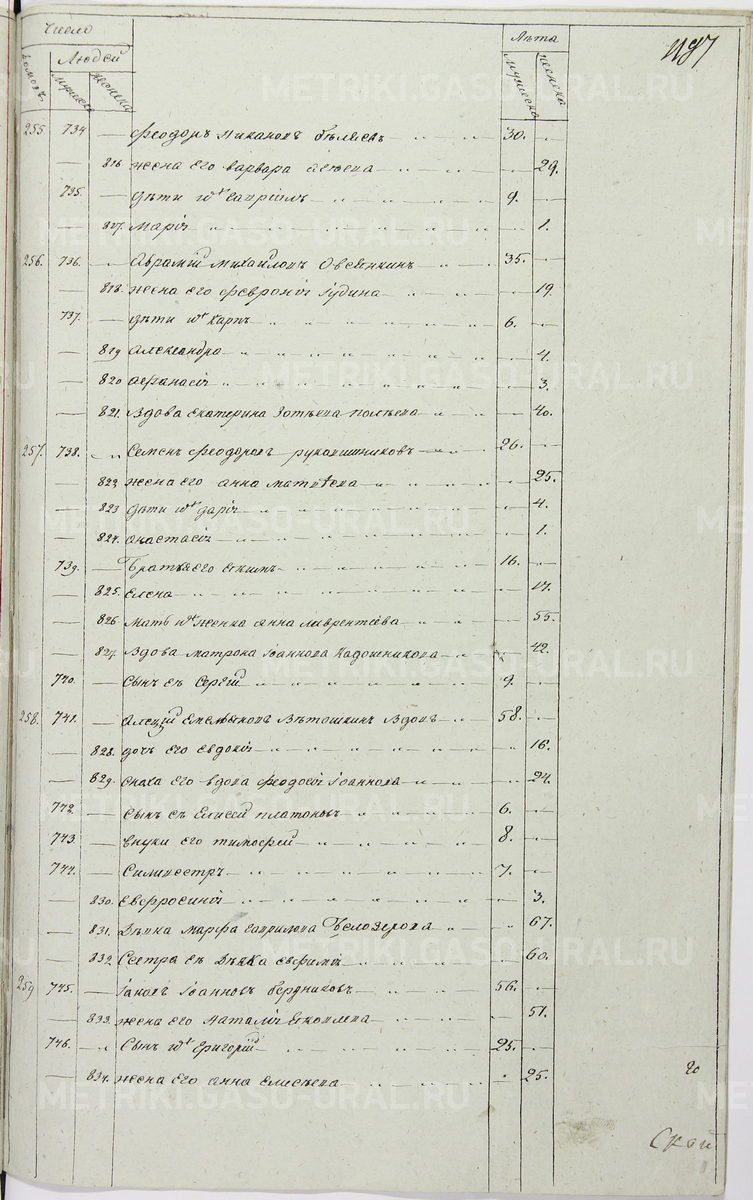 Число
Людей
Лѣта
домовъ мужеска женска мужеска женска
255 734 — Феодоръ Никановъ Бѣляевъ 30.
— 816. жена его Варвара 29.
735. — Дѣти ихъ Гавріилъ 9.
— 817. Марія 1.
256. 736. Аврамій Михайловъ Овсянкинъ 35.
— 818. жена его Февронія Іудина 19
737. — дѣти ихъ Карпъ 6.
— 819 Александра 4.
— 820 Афанасія 3.
— 821. Вдова Екатерина Зотѣева 40.
257. 738. Семенъ Феодоровъ Рукавишниковъ 26.
— 822 жена его Анна Матвѣева 25.
— 823 дѣти ихъ Дарія 4.
— 824. Анастасія 1.
739. — Братья его Екимъ 16.
— 825. Елена 17.
— 826 Мать ихъ женка Анна Лаврентьева 55.
— 827. Вдова Матрона Іоаннова Кадошникова 42.
740. — Сынъ ея Сергій 9.
258. 741. — Алецій Емельяновъ Вѣтошкинъ вдовъ 58.
— 828. дочь его Евдокія 16.
— 829. сноха его вдова Феодосія Іоаннова 24.
742. — Сынъ ея Елисей Платоновъ 6.
743. — внуки его Тимофей 8.
744. — Силивестръ 7.
— 830. Евфросинія 3.
— 831. Дѣвка Марфа Гаврилова Бѣлозерова 67.
— 832. Сестра ея Дѣвка Евфимія 60.
259 745. — Іаковъ Іоанновъ Бердниковъ 56.
— 833. жена его Наталія Яковлева 51.
746. Сынъ ихъ Григорій 25.
— 834. жена его Анна Елисѣева 25.
20
Ской
METRIKI.GASO-URAL.RU